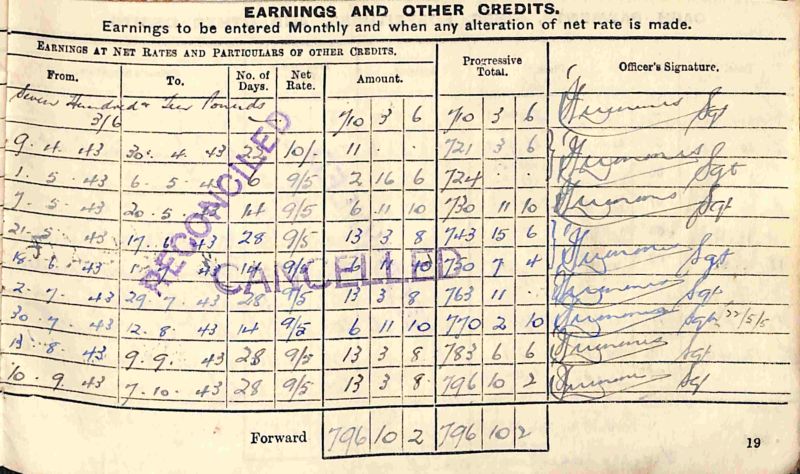 EARNINGS AND OTHER CREDITS.
Earnings to be entered Monthly and when any alteration of net rate is made.
EARNINGS AT NET RATES AND PARTICULARS OF OTHER CREDITS.
From. To. No. of Days. Net Rate. Amount. Progressive Total. Officer's Signature.
Seven Hundred & Ten Pounds
3/6 710 3 6 710 3 6 Sgt
9 . 4 . 43 30 . 4 . 43 10/- 11 721 3 6
1 . 5 . 43 6 . 5 . 43 6 9/5 2 16 6 724 . . Sgt
7 . 5 . 43 20 . 5 . 43 14 9/5 6 11 10 730 11 10 Sgt
21 . 5 . 43 17 . 6 . 43 28 9/5 13 3 8 743 15 6
18 . 6 . 43 1 . 7 . 43 14 9/5 6 11 10 750 7 4 Sgt
2 . 7 . 43 29 . 7 . 43 28 9/5 13 3 8 763 11 . Sgt
30 . 7 . 43 12 . 8 . 43 14 9/5 6 11 10 770 2 10 Sgt
13 . 8 . 43 9 . 9 . 43 28 9/5 13 3 8 783 6 6 Sgt
10 . 9 . 43 7 . 10 . 43 28 9/5 13 3 8 796 10 2 Sgt
RECONCILED
CANCELLED
Forward 796 10 2 796 10 2
19